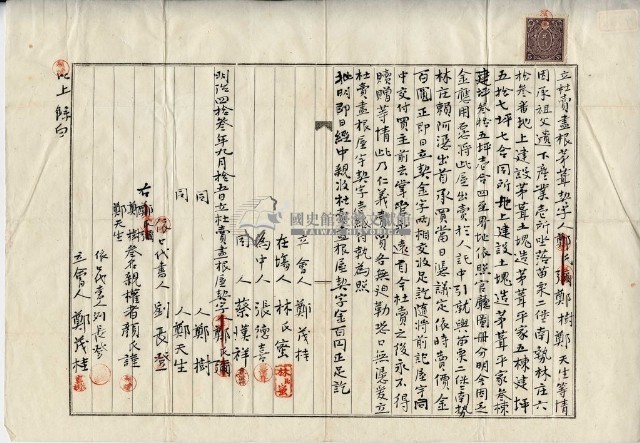 立杜賣盡根茅葺契字人鄭氏彌鄭樹鄭天生等情
因承祖父遺下產業壱所坐落苗栗二堡南勢林庄六
拾參番地上建設茅葺土塊造茅葺平家五棟建坪
五拾七坪七合同所地上建設土塊造茅葺平家參棟
建坪參拾五坪壱合四至界址依照官廳圖冊分明今因乏
金應用愿將此屋出賣於人託中引就與苗栗二堡南勢
林庄賴阿憑出首承買當日憑議定依時賣價金
百圓正即日立契金字兩相交收足訖隨將前記屋字同
中交付買主前去掌管永遠自今杜賣之後永不得
贖贈等情此乃仁義賣買各無迫勒恐口無憑爰立
杜賣盡根屋契字壱紙付執為照
批明即日經中親收杜賣盡根屋契字金百円正足訖
立會人 鄭茂桂
在場人 林氏蜜
為中人 張德喜
同人 蔡漢祥
明治四拾參年九月拾五日立杜賣盡根屋契字鄭氏彌
同人 鄭樹
同人 鄭天生
依口代書人 劉長登
右鄭氏彌
鄭樹參名親權者賴氏謹
鄭天生
依口代書人劉長登
立會人 鄭茂桂
以上餘白
國史館臺灣文獻館
TAIWAN HISTORICA